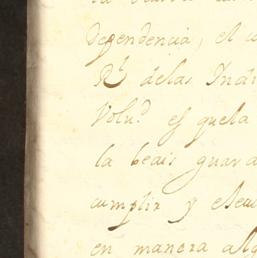 Dependencia, el c
Rl. delas Indi
Volud. es quela
la beais guard
cumplir y execu
en manera alg